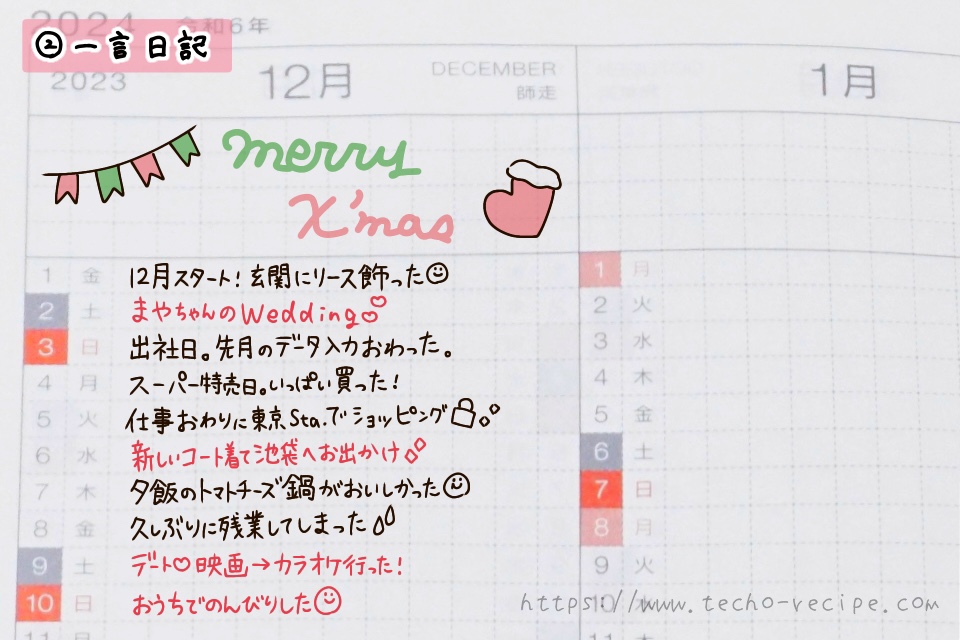 2024 令和6年
②一言日記
2023 12月 DECEMBER 師走
1月
merry
X'mas
1 金 12月スタート!玄関にリース飾った
2 土 まやちゃんのWedding
3 日 出社日。先月のデータ入力おわった。
4 月 スーパー特売日。いっぱい買った!
5 火 仕事おわりに東京Sta.でショッピング
6 水 新しいコート着て池袋へお出かけ
7 木 夕飯のトマトチーズ鍋がおいしかった
8 金 久しぶりに残業してしまった
9 土 デート♡映画→カラオケ行った!
10 日 おうちでのんびりした
11 月
1 月
2 火
3 水
4 木
5 金
6 土
7 日
8 月
9 火
10 水
11 木
https://www.techo-recipe.com